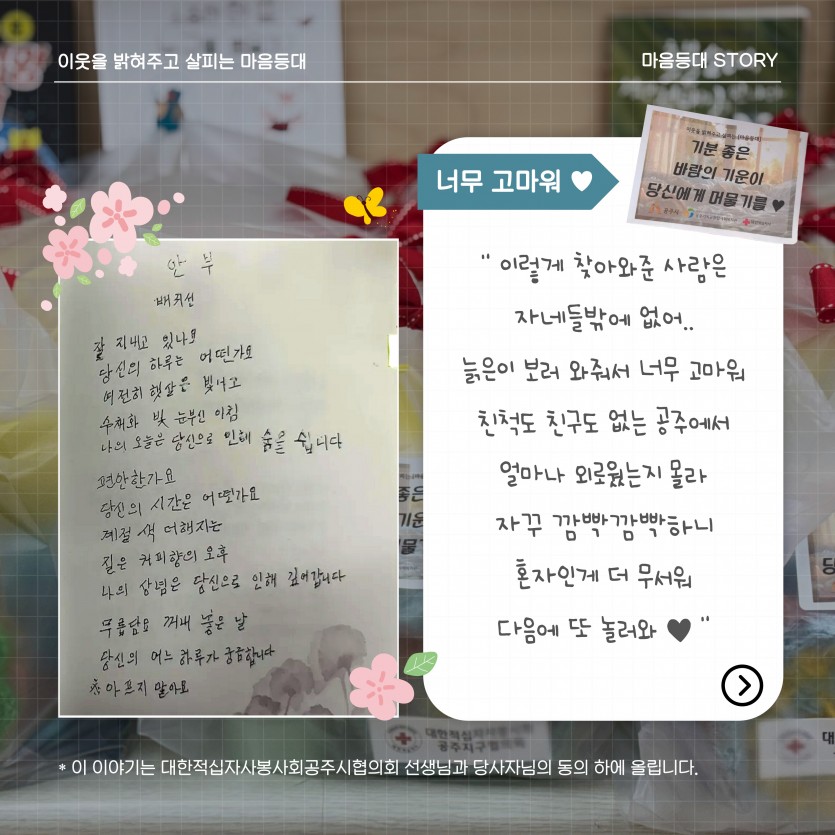 이웃을 밝혀주고 살피는 마음등대
마음등대 STORY
이웃을 밝혀주고 살피는 (마음등대)
기분 좋은
바람의 기운이
당신에게 머물기를 ♥
공주시
너무 고마워 ♥
안 부
배귀선
잘 지내고 있나요
당신의 하루는 어떤가요
여전히 햇살은 빛나고
수채화 빛 눈부신 아침
나의 오늘은 당신으로 인해 숨을 쉽니다
편안한가요
당신의 시간은 어떤가요
계절 색 더해지는
짙은 커피향의 오후
나의 상념은 당신으로 인해 깊어갑니다
무릎담요 꺼내 놓은 날
당신의 어느 하루가 궁금합니다
아프지 말아요
" 이렇게 찾아와준 사람은
자네들밖에 없어..
늙은이 보러 와줘서 너무 고마워
친척도 친구도 없는 공주에서
얼마나 외로웠는지 몰라
자꾸 깜빡깜빡하니
혼자인게 더 무서워
다음에 또 놀러와 ♥ "
대한적십자사봉사회
공주지구협의회
* 이 이야기는 대한적십자사봉사회공주시협의회 선생님과 당사자님의 동의 하에 올립니다.